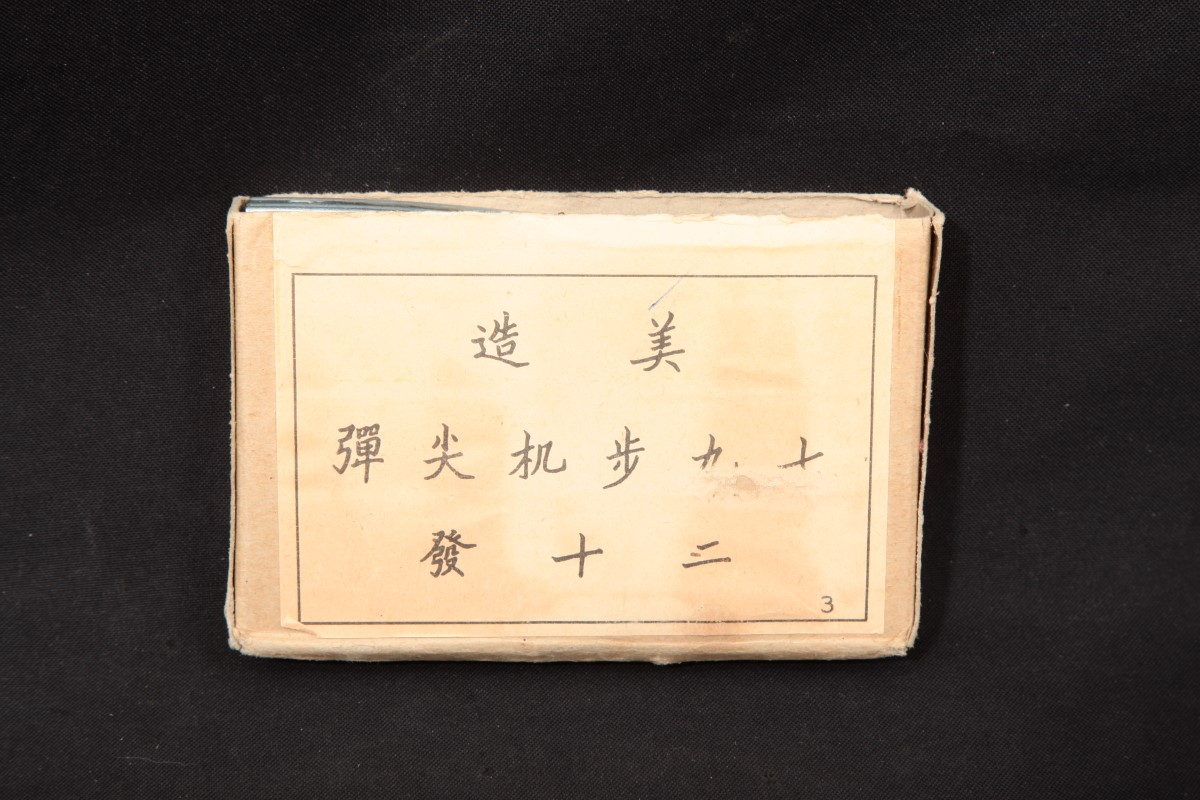 美造
七九步机尖彈
二十發
3